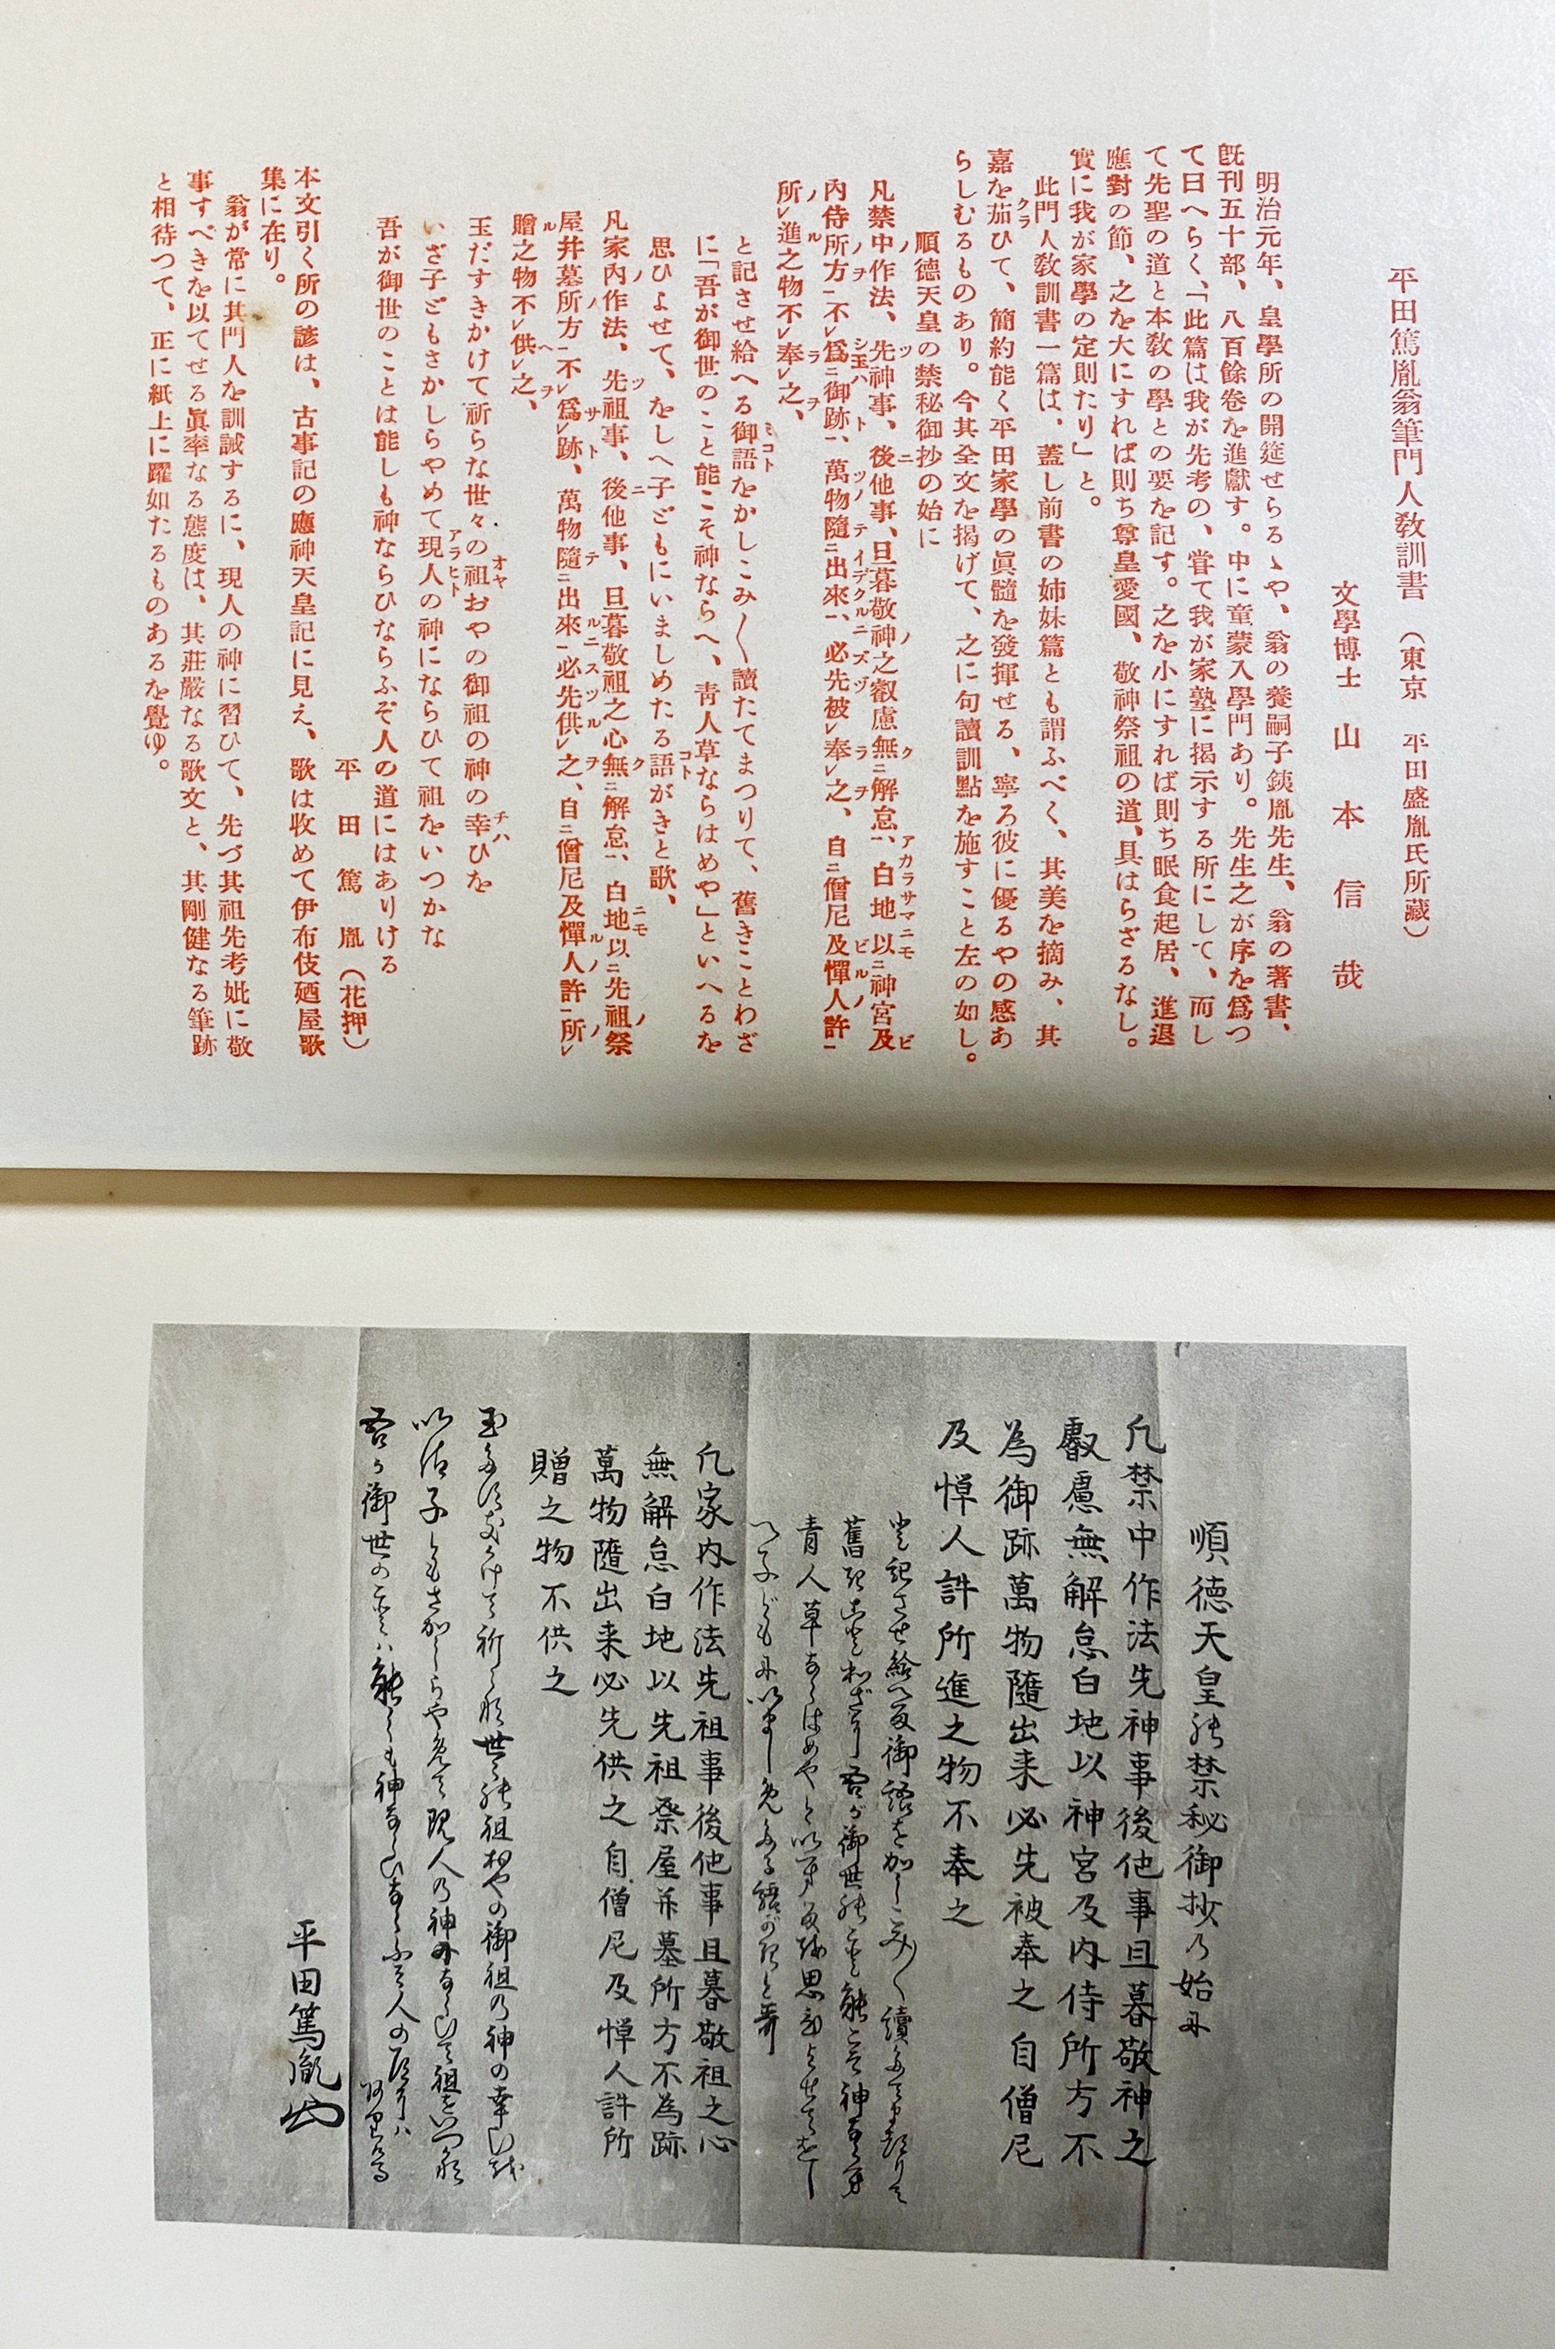 平田篤胤翁筆門人敎訓書　（東京　平田盛胤氏所藏）
文學博士　山本信哉
明治元年、皇學所の開筵せらるゝや、翁の養嗣子銕胤先生、翁の著書、
既刊五十部、八百餘卷を進獻す。中に童蒙入學門あり。先生之が序を爲つ
て曰へらく、「此篇は我が先考の、甞て我が家塾に揭示する所にして、而し
て先聖の道と本敎の學との要を記す。之を小にすれば則ち眠食起居、進退
應對の節、之を大にすれば則ち尊皇愛國、敬神祭祖の道、具はらざるなし。
實に我が家學の定則たり」と。
此門人敎訓書一篇は、蓋し前書の姉妹篇とも謂ふべく、其美を摘み、其
嘉を茹クラひて、簡約能く平田家學の眞髓を發揮せる、寧ろ彼に優るやの感あ
らしむるものあり。今其全文を揭げて、之に句讀訓點を施すこと左の如し。
順德天皇の禁秘御抄の始に
凡禁中作法、先神事、後他事、旦暮敬神之叡慮無二解怠一、白地以二神宮及
內侍所方一不レ爲二御跡一、萬物隨二出來一、必先被レ奉レ之、自二僧尼及憚人許一
所レ進之物不レ奉レ之、
と記させ給へる御語ミコトをかしこみ〳〵讀たてまつりて、舊きことわざ
に「吾が御世のこと能こそ神ならへ、靑人草ならはめや」といへるを
思ひよせて、をしへ子どもにいましめたる語コトがきと歌、
凡家內作法、先祖事、後他事、旦暮敬祖之心無二解怠一、白地以二先祖祭
屋幷墓所方一不レ爲レ跡、萬物隨二出來一必先供レ之、自二僧尼及憚人許一所レ
贈之物不レ供レ之、
玉だすきかけて祈らな世々の祖オヤおやの御祖の神の幸チハひを
いざ子どもさかしらやめて現人アラヒトの神にならひて祖をいつかな
吾が御世のことは能しも神ならひならふぞ人の道にはありける
平田篤胤（花押）
本文引く所の諺は、古事記の應神天皇記に見え、歌は收めて伊布伎廼屋歌
集に在り。
翁が常に其門人を訓誡するに、現人の神に習ひて、先づ其祖先考妣に敬
事すべきを以てせる眞率なる態度は、其莊嚴なる歌文と、其剛健なる筆跡
と相待つて、正に紙上に躍如たるものあるを覺ゆ。
順德天皇能禁秘御抄乃始尓
凡禁中作法先神事後他事旦暮敬神之
叡慮無解怠白地以神宮及內侍所方不
為御跡萬物隨出来必先被奉之自僧尼
及憚人許所進之物不奉之
凡家內作法先祖事後他事旦暮敬祖之心
無解怠白地以先祖祭屋并墓所方不為跡
萬物隨出来必先供之自僧尼及憚人許所
贈之物不供之
平田篤胤